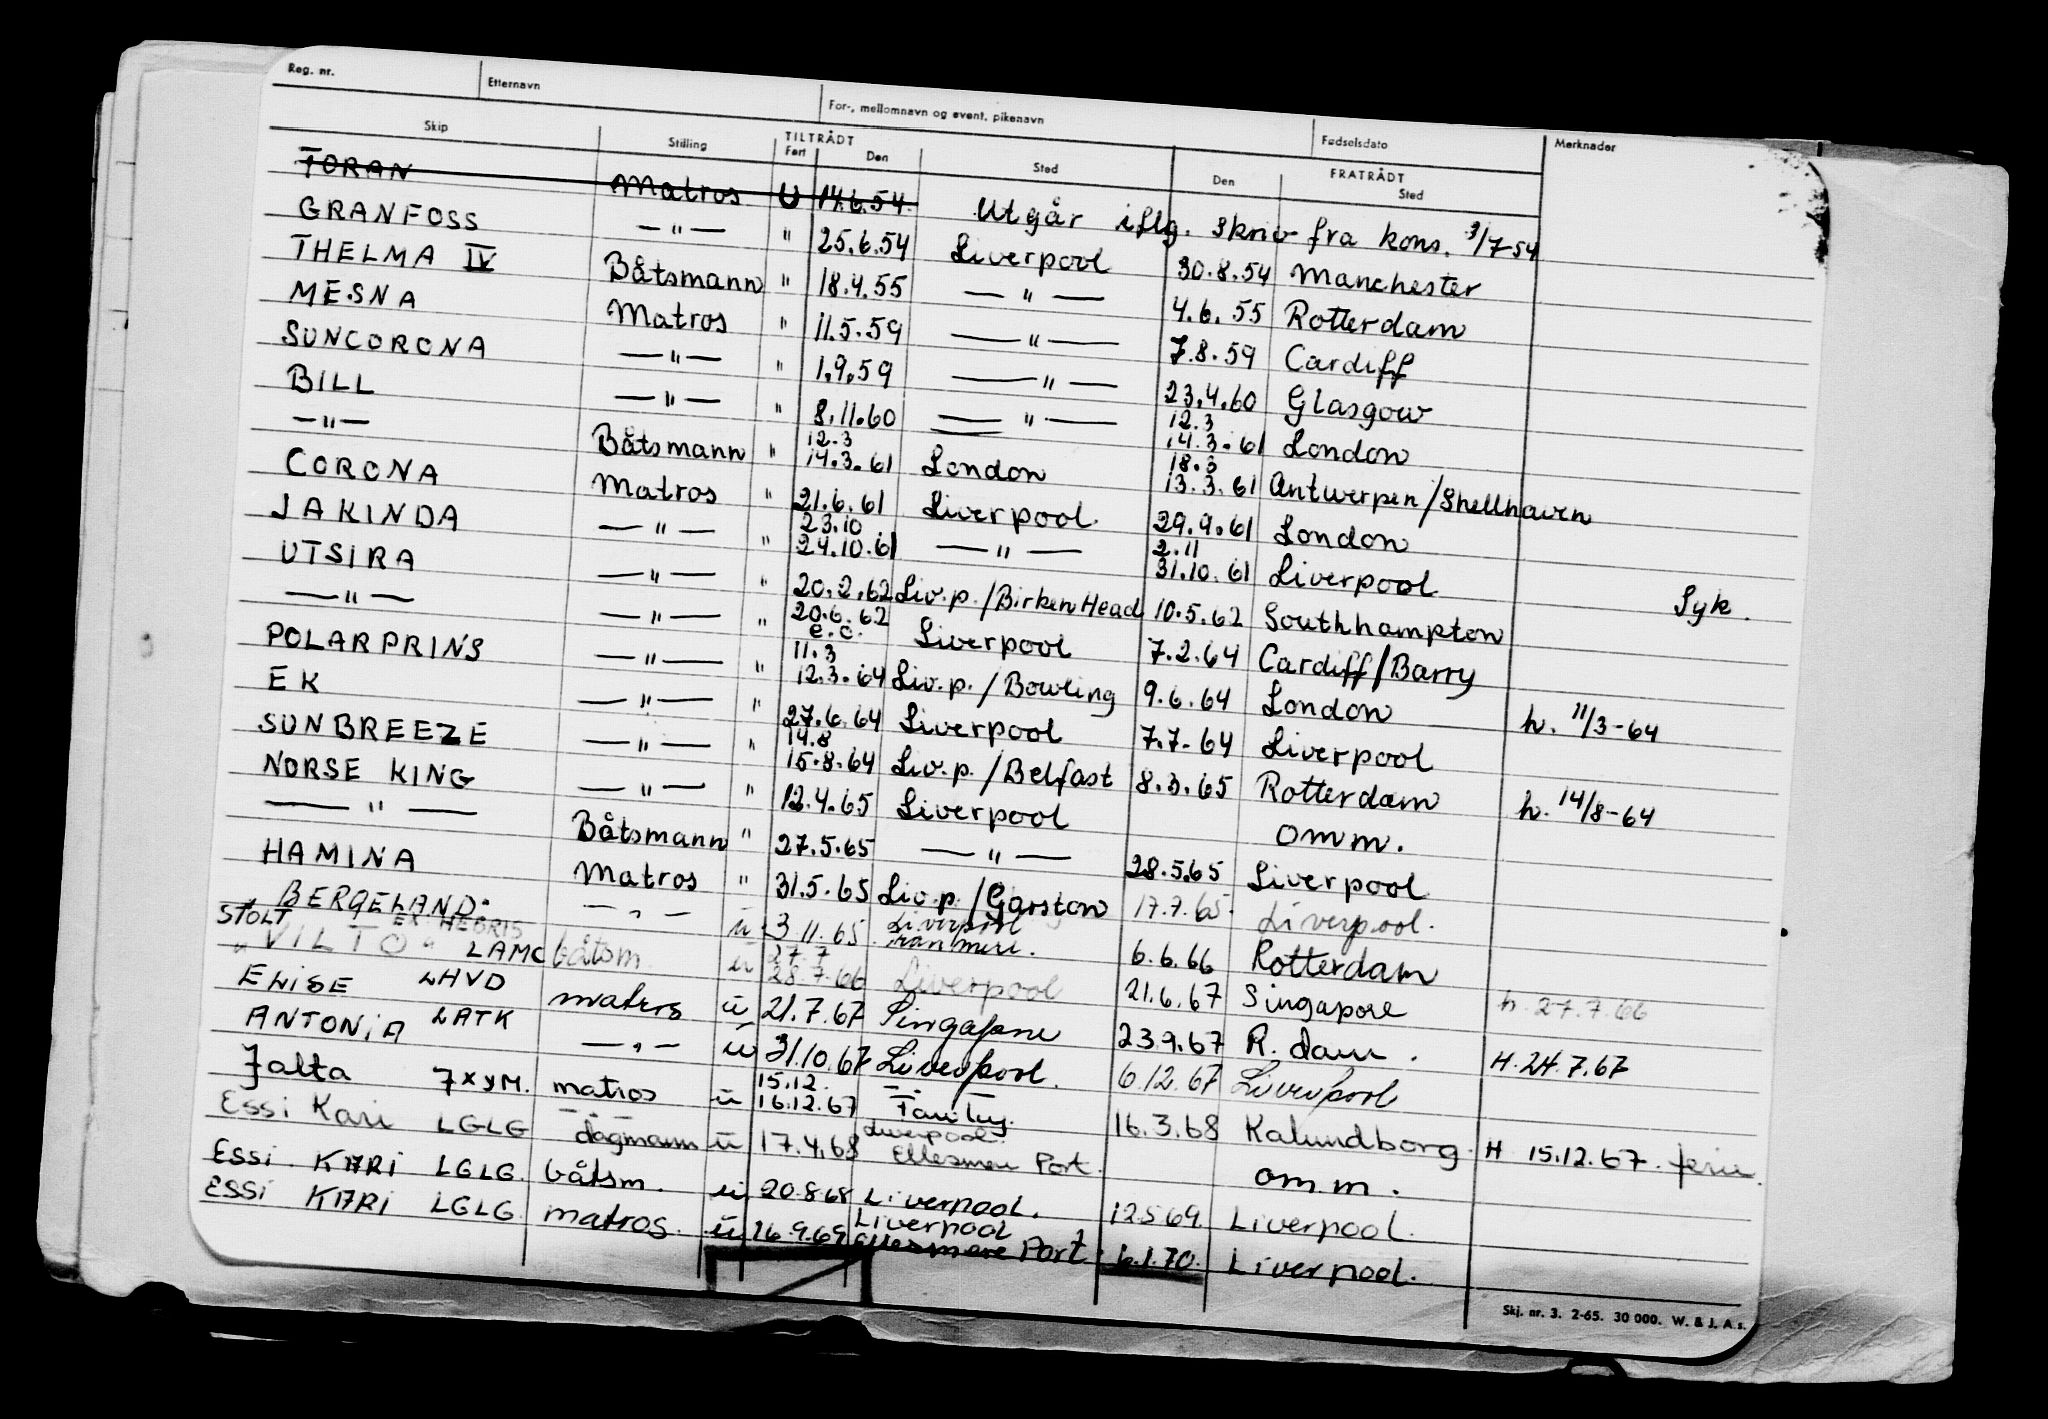 Reg. nr. Etternavn For-, mellomnavn og event. pikenavn Fødselsdato Merknader
Skip Stilling TILTRÅDT Fart Den Sted FRATRÅDT Den Sted
TORAN Matros U 14.6.54. Utgår iflg. skriv fra kons. 3/7-54
GRANFOSS —"— " 25.6.54 Liverpool 30.8.54 Manchester
THELMA IV Båtsmann " 18.4.55 —"— 4.6.55 Rotterdam
MESNA Matros " 11.5.59 —"— 7.8.59 Cardiff
SUNCORONA —"— " 1.9.59 —"— 23.4.60 Glasgow
BILL —"— " 8.11.60 —"— 12.3 14.3.61 London
—"— Båtsmann " 12.3 14.3.61 London 18.3 13.3.61 Antwerpen/Shellhaven
CORONA Matros " 21.6.61 Liverpool 29.9.61 London
JAKINDA —"— " 23.10 24.10.61 —"— 2.11 31.10.61 Liverpool
UTSIRA —"— " 20.2.62 Liv.p./BirkenHead 10.5.62 Southhampton Syk.
—"— —"— " 20.6.62 e.c. Liverpool 7.2.64 Cardiff/Barry
POLARPRINS —"— " 11.3 12.3.64 Liv.p./Bowling 9.6.64 London h. 11/3-64
EK —"— " 27.6.64 Liverpool 7.7.64 Liverpool
SUNBREEZE —"— " 14.8 15.8.64 Liv.p./Belfast 8.3.65 Rotterdam h. 14/8-64
NORSE KING —"— " 12.4.65 Liverpool omm.
—"— Båtsmann " 27.5.65 —"— 28.5.65 Liverpool
HAMINA Matros " 31.5.65 Liv.p./Garston 17.7.65. Liverpool.
BERGELAND. —"— u 3 11.65 Liverpool 6.6.66 Rotterdam
STOLT EX HEGRIS
"VILTO" LAMC båtsm u 27.7 28.7.66 Liverpool 21.6.67 Singapore h. 27.7.66
ELISE LHVD matros u 21.7.67 Singapore 23.9.67 R. dam. H. 24.7.67
ANTONIA LATK —"— u 31.10.67 Liverpool. 6.12.67 Liverpool
Jalta JXYM. matros u 15.12. 16.12.67 16.3.68 Kalundborg. H 15.12.67. ferie.
ESSi Kari LGLG dagmann u 17.4.68 Liverpool. Ellesmere Port. omm.
ESSi KARI LGLG. båtsm. u 20.8.68 Liverpool. 12.5.69. Liverpool.
ESSi KARI LGLG. matros. u 16.9.69 Liverpool Ellesmere Port. 6.1.70. Liverpool.
Skj. nr. 3. 2-65. 30 000. W. & J. A.s.